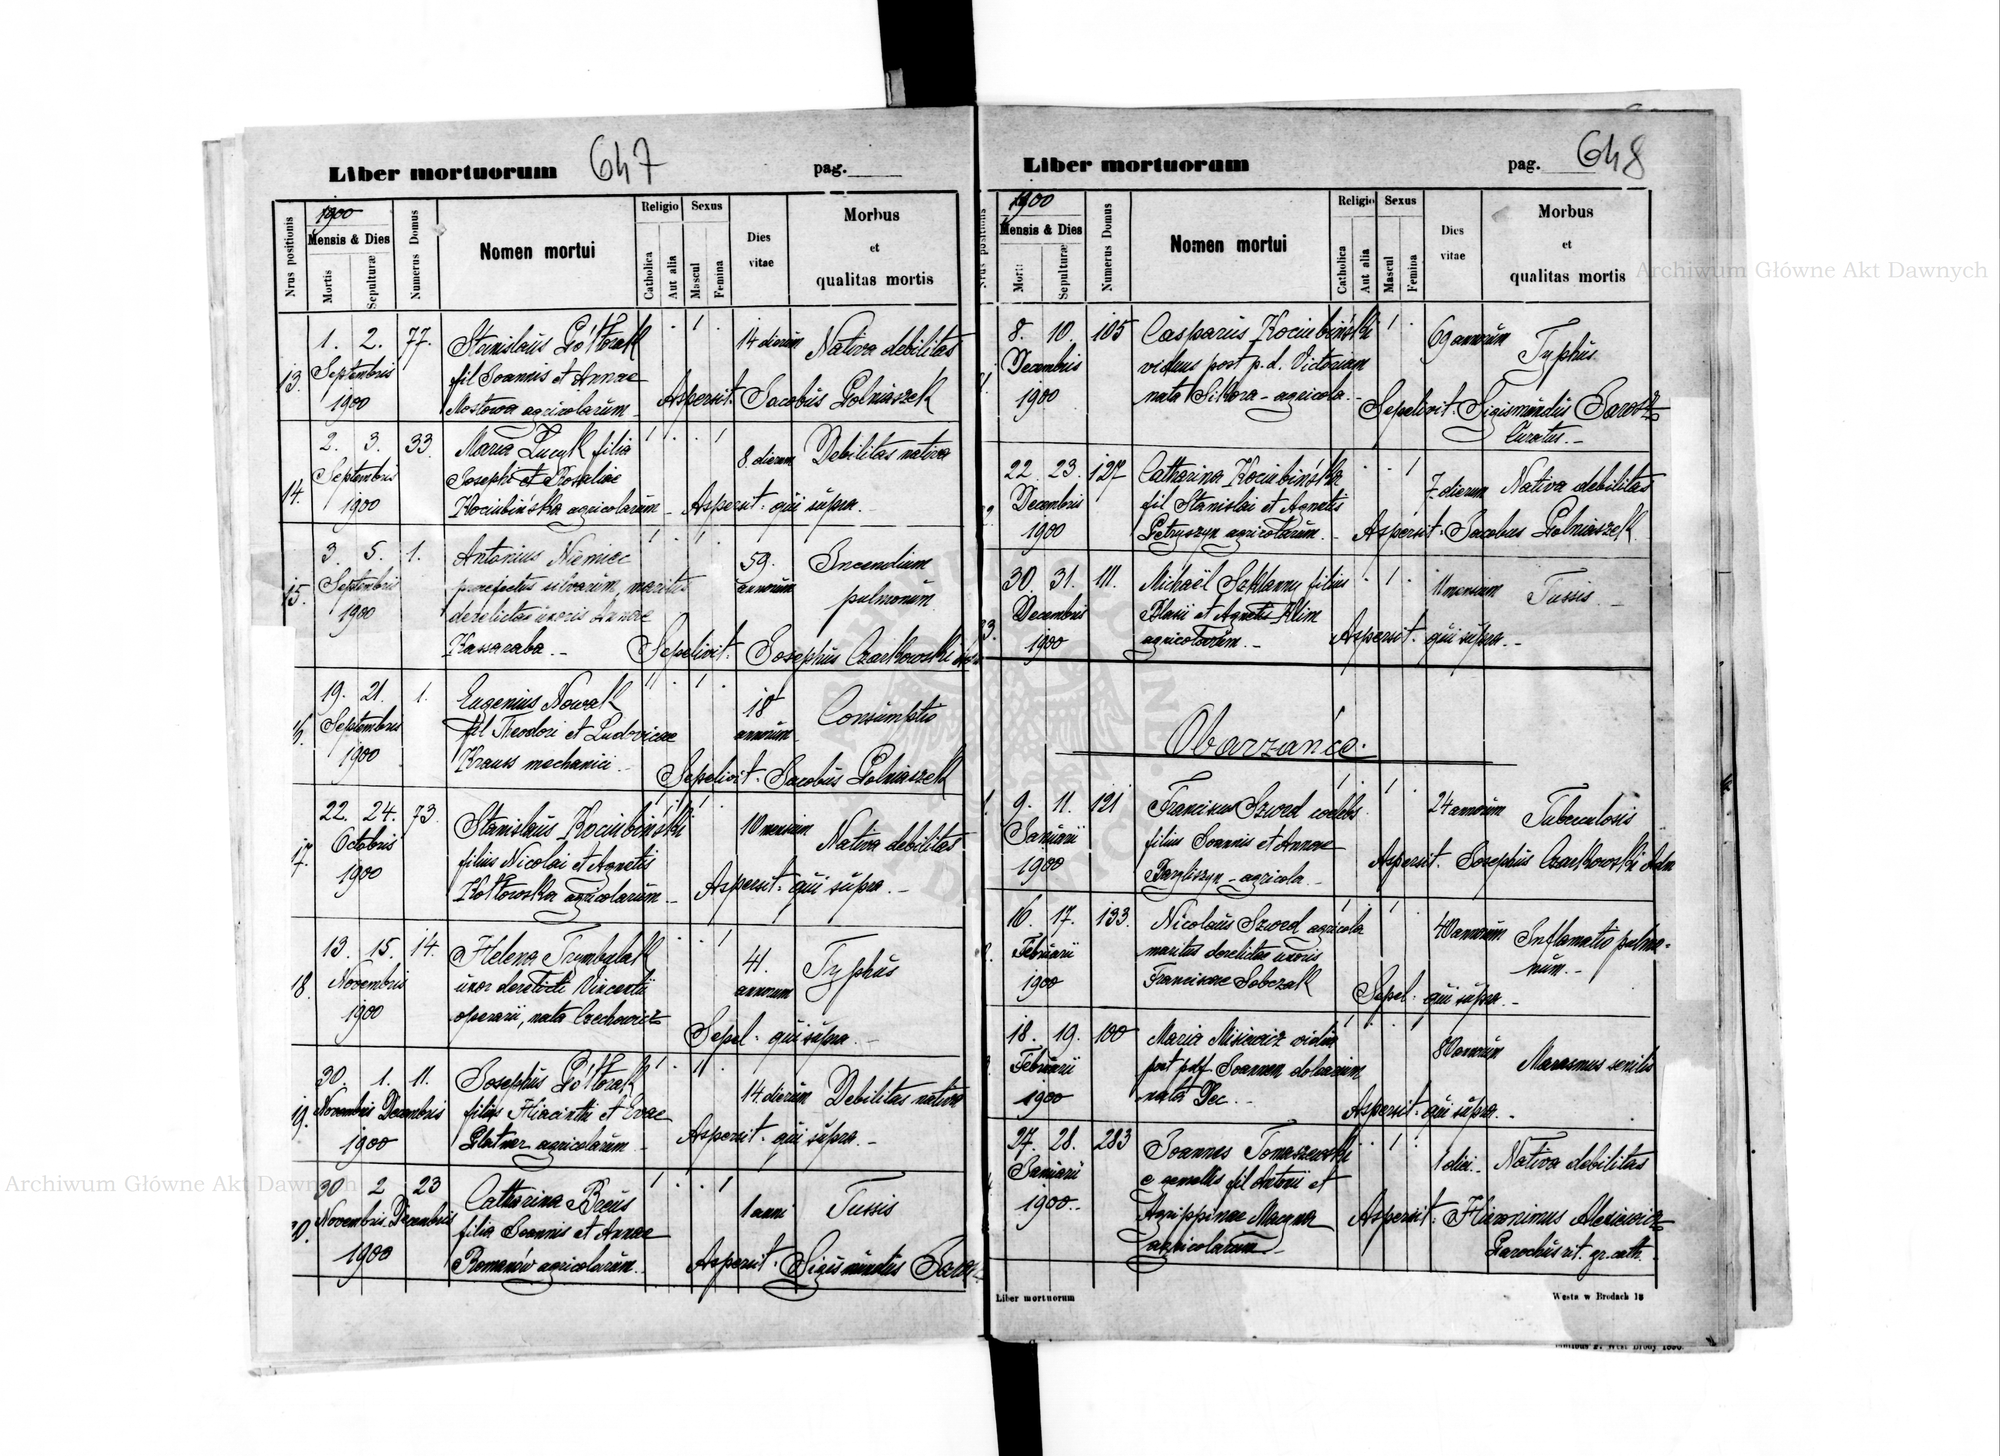 Liber mortuorum 647 pag.
1900
Nrus positionis
Mensis & Dies
Mortis
Sepulturæ
Numerus Domus
Nomen mortui
Religio
Catholica
Aut alia
Sexus
Mascul
Femina
Dies
vitae
Morbus
et
qualitas mortis
13. 1. 2. 77. Stanislaus Półtorak 14 dierum Nativa debilitas
Septembris fil Joannis et Annae
1900 Mostowa agricolarum Aspersit: Jacobus Polniaszek
14. 2. 3. 33. Maria Łucyk filia 8 dierum Debilitas nativa
Septembris Josephi et Rosaliae
1900 Kociubińska agricolarum Aspersit: qui supra.
15. 3. 5. 1. Antonius Niemiec 59. Incendium
Septembris praefectus silvarum, maritus annorum pulmonum
1900 derelictae uxoris Annae
Kassaraba. Sepelivit: Josephus Czarkowski
16. 19. 21. 1. Eugenius Nowak 18 Consumptio
Septembris fil Theodori et Ludovicae annorum
1900 Krauss mechanici Sepelivit: Jacobus Polniaszek
17. 22. 24. 73. Stanislaus Kociubiński 10 mensium Nativa debilitas
Octobris filius Nicolai et Agnetis
1900 Kotłowska agricolarum Aspersit: qui supra.
18. 13. 15. 14. Helena Trymbulak 41. Typhus
Novembris uxor derelicti Vincentii annorum
1900 operarii, nata Czechowicz
Sepel: qui supra.
19. 30. 1. 11. Josephus Półtorak 14. dierum Debilitas nativa
Novembris Decembris filius Hiacinthi et Evae
1900 Platner agricolarum Aspersit: qui supra.
20. 30 2 23 Catharina Breus 1 anni Tussis
Novembris Decembris filia Joannis et Annae
1900 Romanów agricolarum. Aspersit: Sigismundus
Liber mortuorum pag. 648
1900
Nrus positionis
Mensis & Dies
Mortis
Sepulturæ
Numerus Domus
Nomen mortui
Religio
Catholica
Aut alia
Sexus
Mascul
Femina
Dies
vitae
Morbus
et
qualitas mortis
8. 10. 105 Casparus Kociubiński 69 annorum Typhus
Decembris viduus post p. d. Victoriam
1900 nata Sikora - agricola. Sepelivit: Sigismundus Sarosz
Curatus.
22. 23. 127 Catharina Kociubińska 7. dierum Nativa debilitas
Decembris fil Stanislai et Agnetis
1900 Petryszyn agricolarum. Aspersit: Jacobus Polniaszek
30. 31. 111. Michaël Szklanny filius 11 mensium Tussis
Decembris Blasii et Agnetis Klim
1900 agricolarum. Aspersit: qui supra.
Obarzańce.
1. 9. 11. 121 Franciscus Szwed coelebs 24 annorum Tuberculosis
Januarii filius Joannis et Annae
1900 agricola. Aspersit. Josephus Czarkowski Adm
16. 17. 133. Nicolaus Szwed agricola 40 annorum Inflamatio pulmo-
Februarii maritus derelictae uxoris num.
1900 Franciscae Sobczak Sepel: qui supra.
18. 19. 100 Maria Misiewicz vidua 80 annorum Marasmus senilis
Februarii post pdf Joannem doliarium
1900 nata Dec. Aspersit: qui supra.
27. 28. 283 Joannes Tomaszewski 1 diei. Nativa debilitas
Januarii e gemellis fil Antonii et
1900. Agrippinae Macyna Aspersit: Hieronimus Alexiewicz
agricolarum Parochus rit. gr. cath.
Liber mortuorum Westa w Brodach 18
Archiwum Główne Akt Dawnych
Archiwum Główne Akt Dawnych